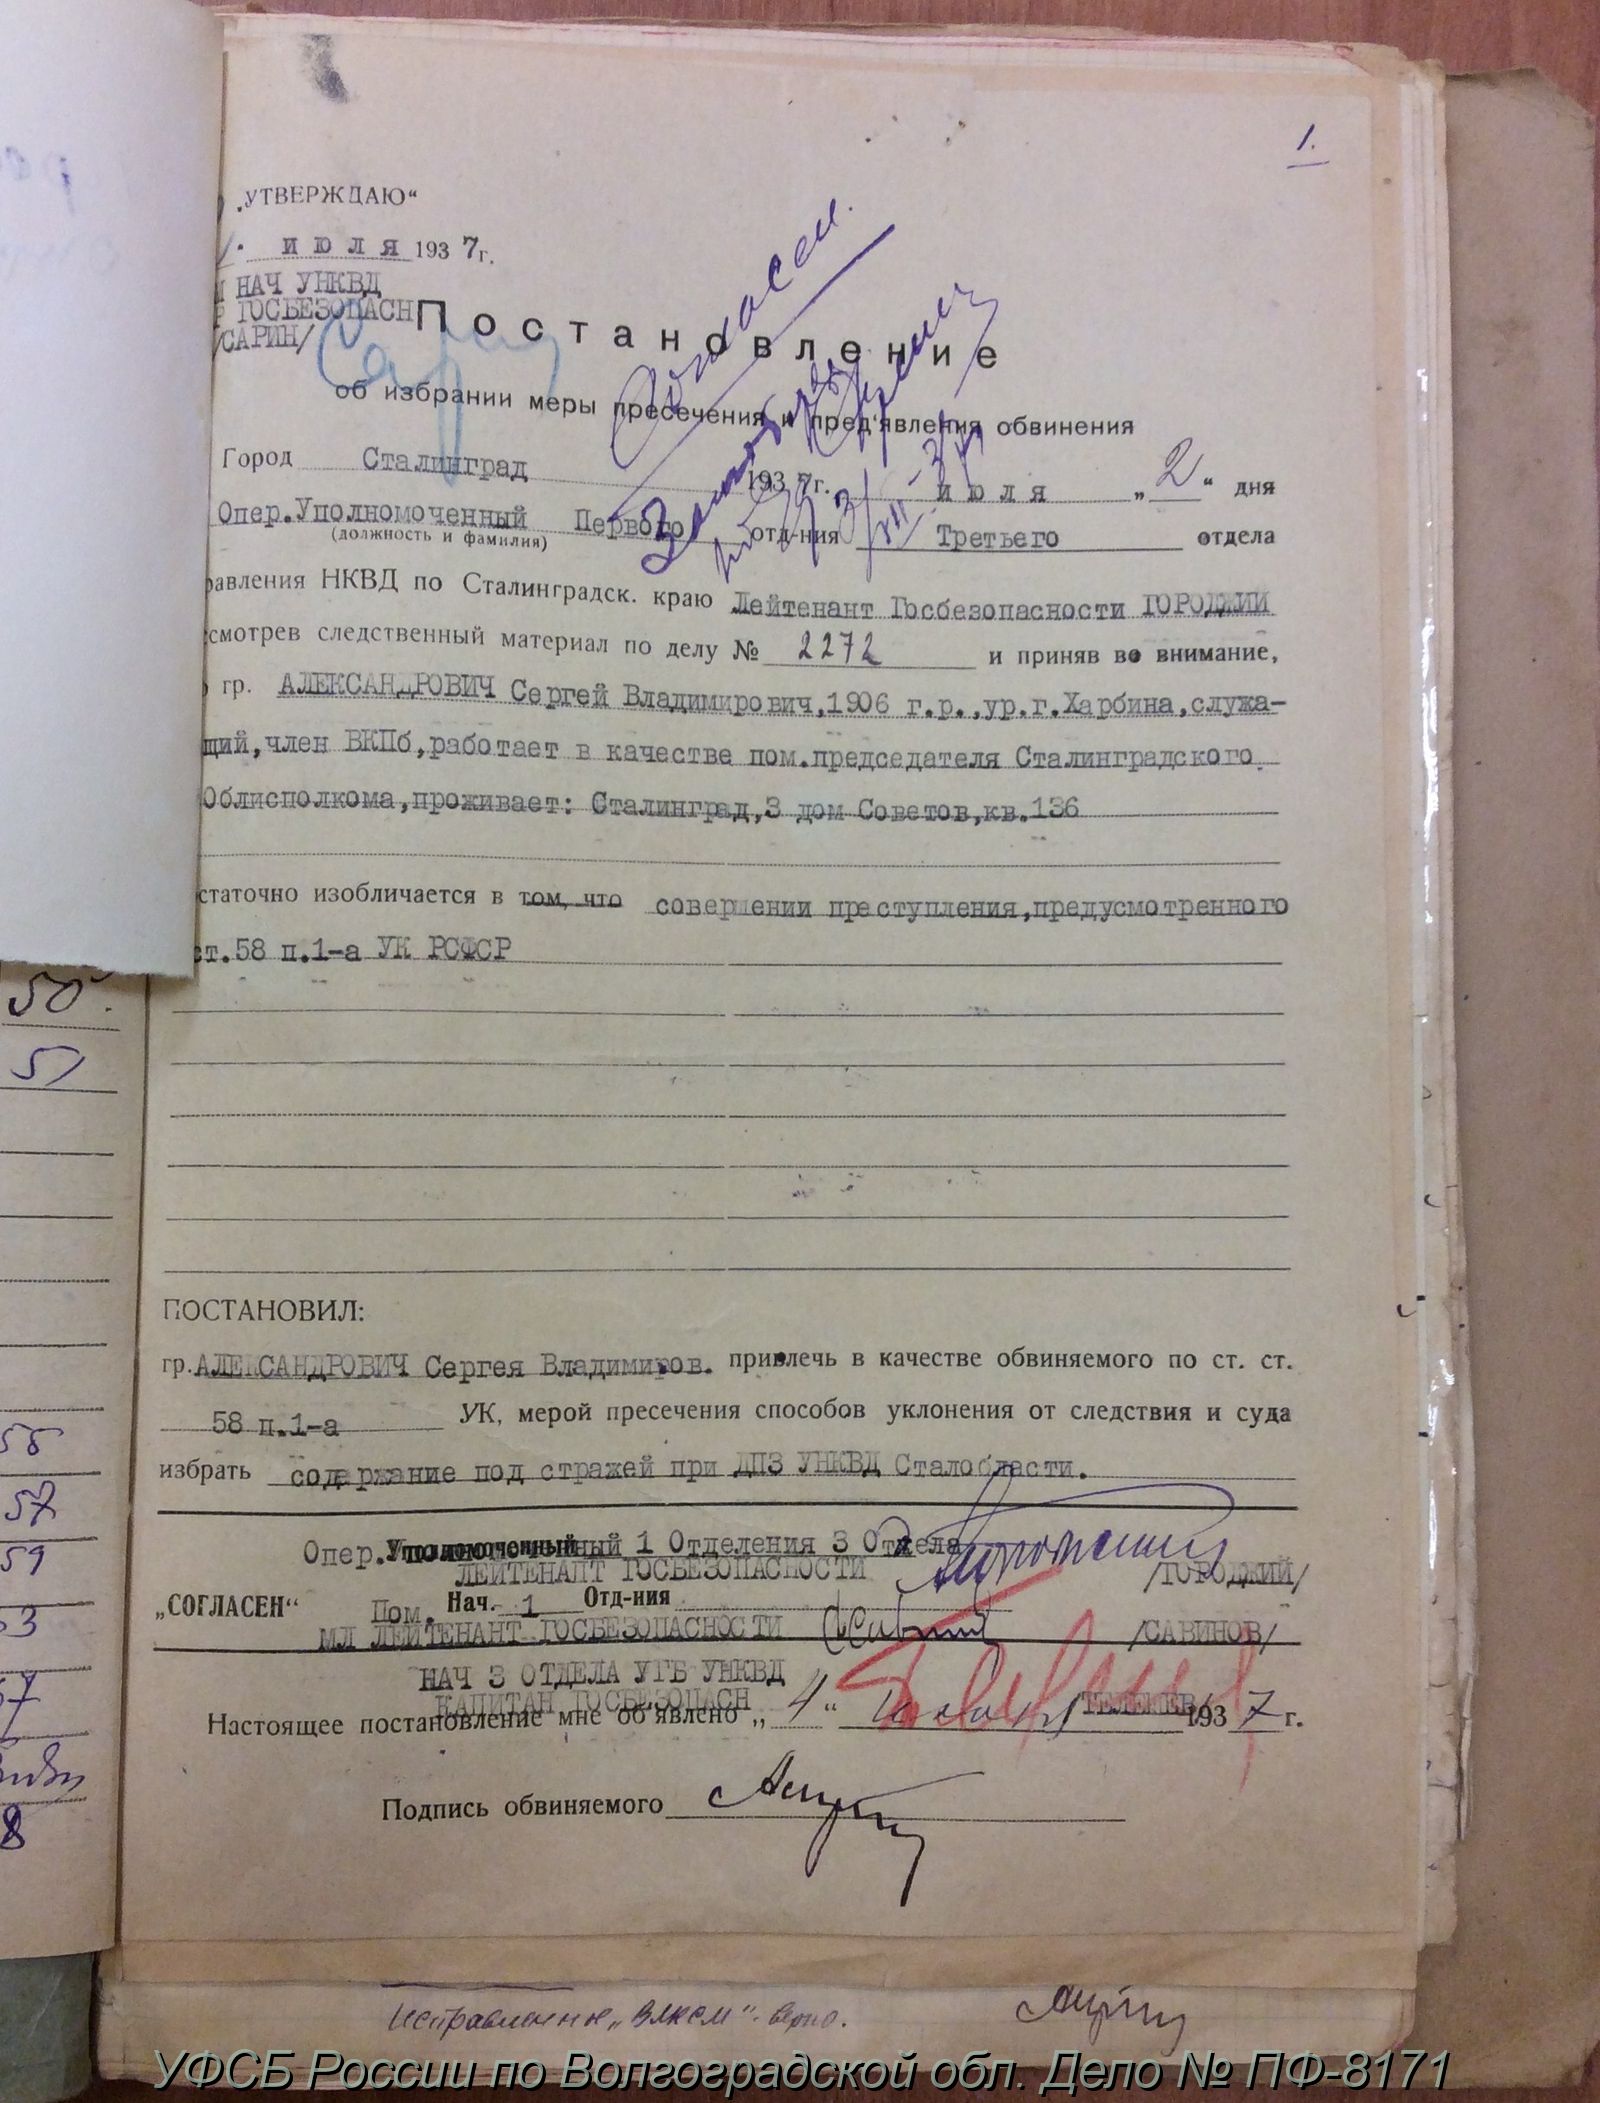 1.
„УТВЕРЖДАЮ“
июля 1937г.
НАЧ УНКВД
ГОСБЕЗОПАСН
/САРИН/
Постановление
об избрании меры пресечения и пред'явления обвинения
Согласен.
Город Сталинград 1937г. июля „2“ дня
Опер.Уполномоченный Первого отд-ния Третьего отдела
(должность и фамилия)
равления НКВД по Сталинградск. краю Лейтенант Госбезопасности ГОРОДЖИЙ
смотрев следственный материал по делу № 2272 и приняв во внимание,
гр. АЛЕКСАНДРОВИЧ Сергей Владимирович,1906 г.р.,ур.г.Харбина,служа-
щий,член ВКПб,работает в качестве пом.председателя Сталинградского
Облисполкома,проживает: Сталинград,3 дом Советов,кв.136
статочно изобличается в том, что совершении преступления,предусмотренного
ст.58 п.1-а УК РСФСР
ПОСТАНОВИЛ:
гр.АЛЕКСАНДРОВИЧ Сергея Владимиров. привлечь в качестве обвиняемого по ст. ст.
58 п.1-а УК, мерой пресечения способов уклонения от следствия и суда
избрать содержание под стражей при ДПЗ УНКВД Сталобласти.
Опер.Уполномоченный 1 Отделения 3 Отдела
ЛЕЙТЕНАНТ ГОСБЕЗОПАСНОСТИ /ГОРОДЖИЙ/
„СОГЛАСЕН“ Пом. Нач. 1 Отд-ния
МЛ ЛЕЙТЕНАНТ ГОСБЕЗОПАСНОСТИ /САВИНОВ/
НАЧ 3 ОТДЕЛА УГБ УНКВД
КАПИТАН ГОСБЕЗОПАСН
Настоящее постановление мне об'явлено „4“ 1937 г.
Подпись обвиняемого
50.
51
57
59
Исправленное „ВЛКСМ“ - верно.
УФСБ России по Волгоградской обл. Дело № ПФ-8171